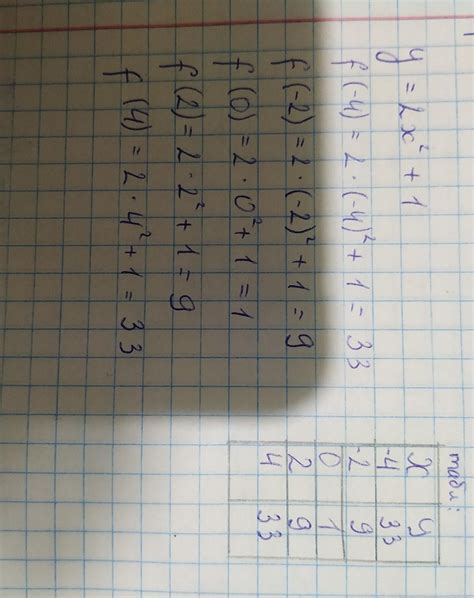 y = 2x² + 1
f(-4) = 2 · (-4)² + 1 = 33
f(-2) = 2 · (-2)² + 1 = 9
f(0) = 2 · 0² + 1 = 1
f(2) = 2 · 2² + 1 = 9
f(4) = 2 · 4² + 1 = 33
табл:
x y
-4 33
-2 9
0 1
2 9
4 33